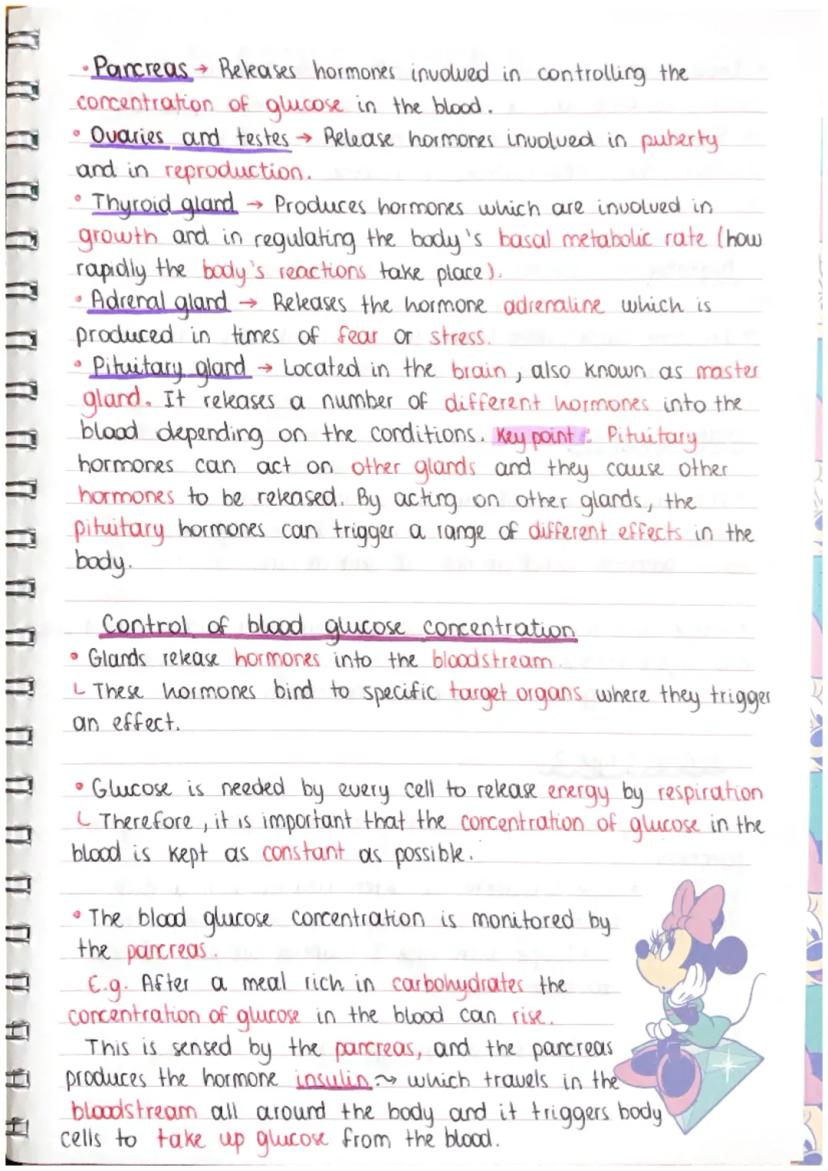 • Pancreas → Releases hormones involved in controlling the
concentration of glucose in the blood.
• Ovaries and testes → Release hormones involved in puberty
and in reproduction.
• Thyroid gland → Produces hormones which are involved in
growth and in regulating the body's basal metabolic rate (how
rapidly the body's reactions take place).
• Adrenal gland → Releases the hormone adrenaline which is
produced in times of fear or stress.
• Pituitary gland → Located in the brain, also known as master
gland. It releases a number of different hormones into the
blood depending on the conditions. Key point: Pituitary
hormones can act on other glands and they cause other
hormones to be released. By acting on other glands, the
pituitary hormones can trigger a range of different effects in the
body.
Control of blood glucose concentration
• Glands release hormones into the bloodstream
└ These hormones bind to specific target organs where they trigger
an effect.
• Glucose is needed by every cell to release energy by respiration
└ Therefore, it is important that the concentration of glucose in the
blood is kept as constant as possible.
• The blood glucose concentration is monitored by
the pancreas.
E.g. After a meal rich in carbohydrates the
concentration of glucose in the blood can rise.
This is sensed by the pancreas, and the pancreas
produces the hormone insulin ⤳ which travels in the
bloodstream all around the body and it triggers body
cells to take up glucose from the blood.